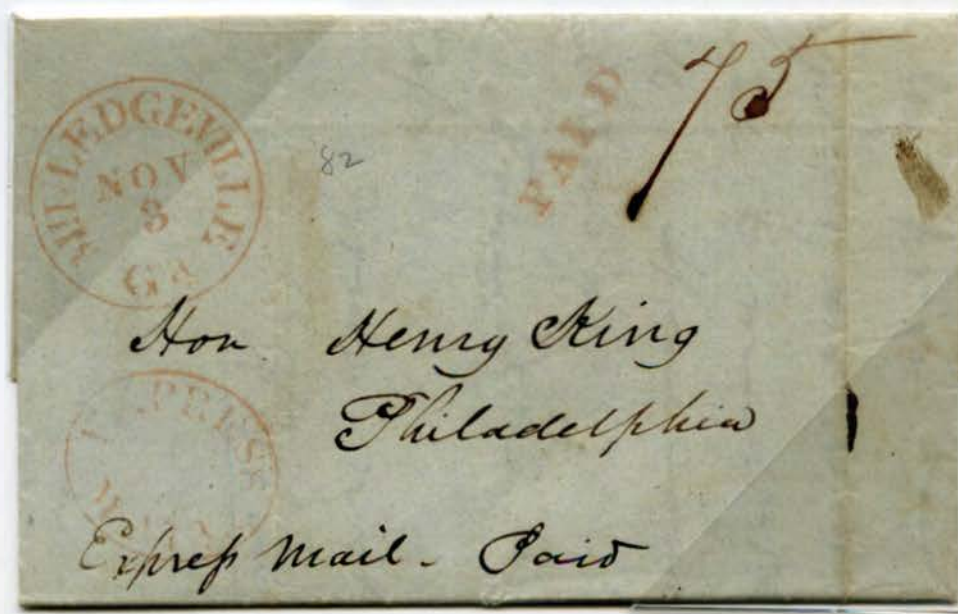 MILLEDGEVILLE
NOV
8
Ga
82
PAID
75
Hon Henry King
Philadelphia
EXPRESS
MAIL
Express Mail - Paid